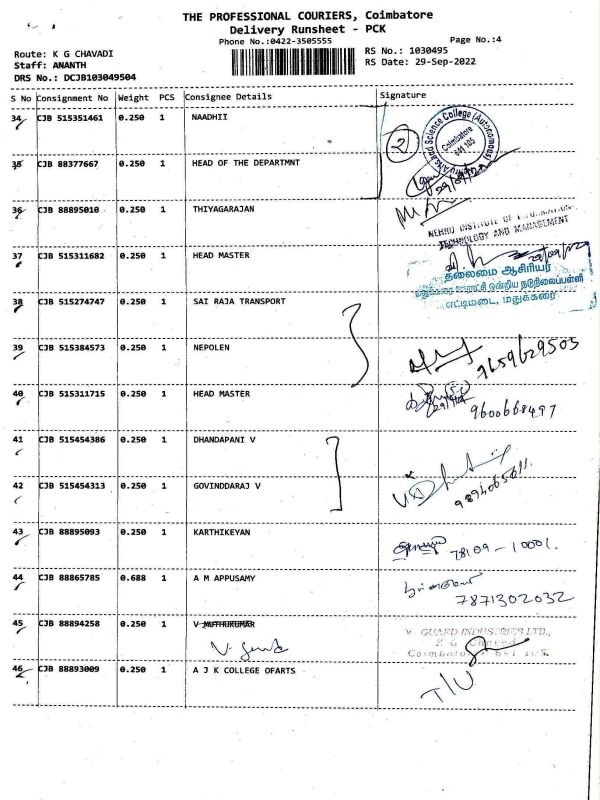 THE PROFESSIONAL COURIERS, Coimbatore
Delivery Runsheet - PCK
Phone No.:0422-3505555
Page No.:4
Route: K G CHAVADI
Staff: ANANTH
DRS No.: DCJB103049504
RS No.: 1030495
RS Date: 29-Sep-2022
S No Consignment No Weight PCS Consignee Details Signature
34 CJB 515351461 0.250 1 NAADHII
2
Science College (Autonomous)
Coimbatore
641 105
35 CJB 88377667 0.250 1 HEAD OF THE DEPARTMNT
36 CJB 88895010 0.250 1 THIYAGARAJAN
NEHRU INSTITUTE OF
TECHNOLOGY AND MANAGEMENT
37 CJB 515311682 0.250 1 HEAD MASTER
தலைமை ஆசிரியர்
எட்டிமடை, மதுக்கரை
38 CJB 515274747 0.250 1 SAI RAJA TRANSPORT
39 CJB 515384573 0.250 1 NEPOLEN
9659629503
40 CJB 515311715 0.250 1 HEAD MASTER
9600668497
41 CJB 515454386 0.250 1 DHANDAPANI V
42 CJB 515454313 0.250 1 GOVINDDARAJ V
43 CJB 88895093 0.250 1 KARTHIKEYAN
78109-10001.
44 CJB 88865785 0.688 1 A M APPUSAMY
7871302032
45 CJB 88894258 0.250 1 V MUTHUKUMAR
V GUARD INDUSTRIES LTD.,
46 CJB 88893009 0.250 1 A J K COLLEGE OFARTS
T/U